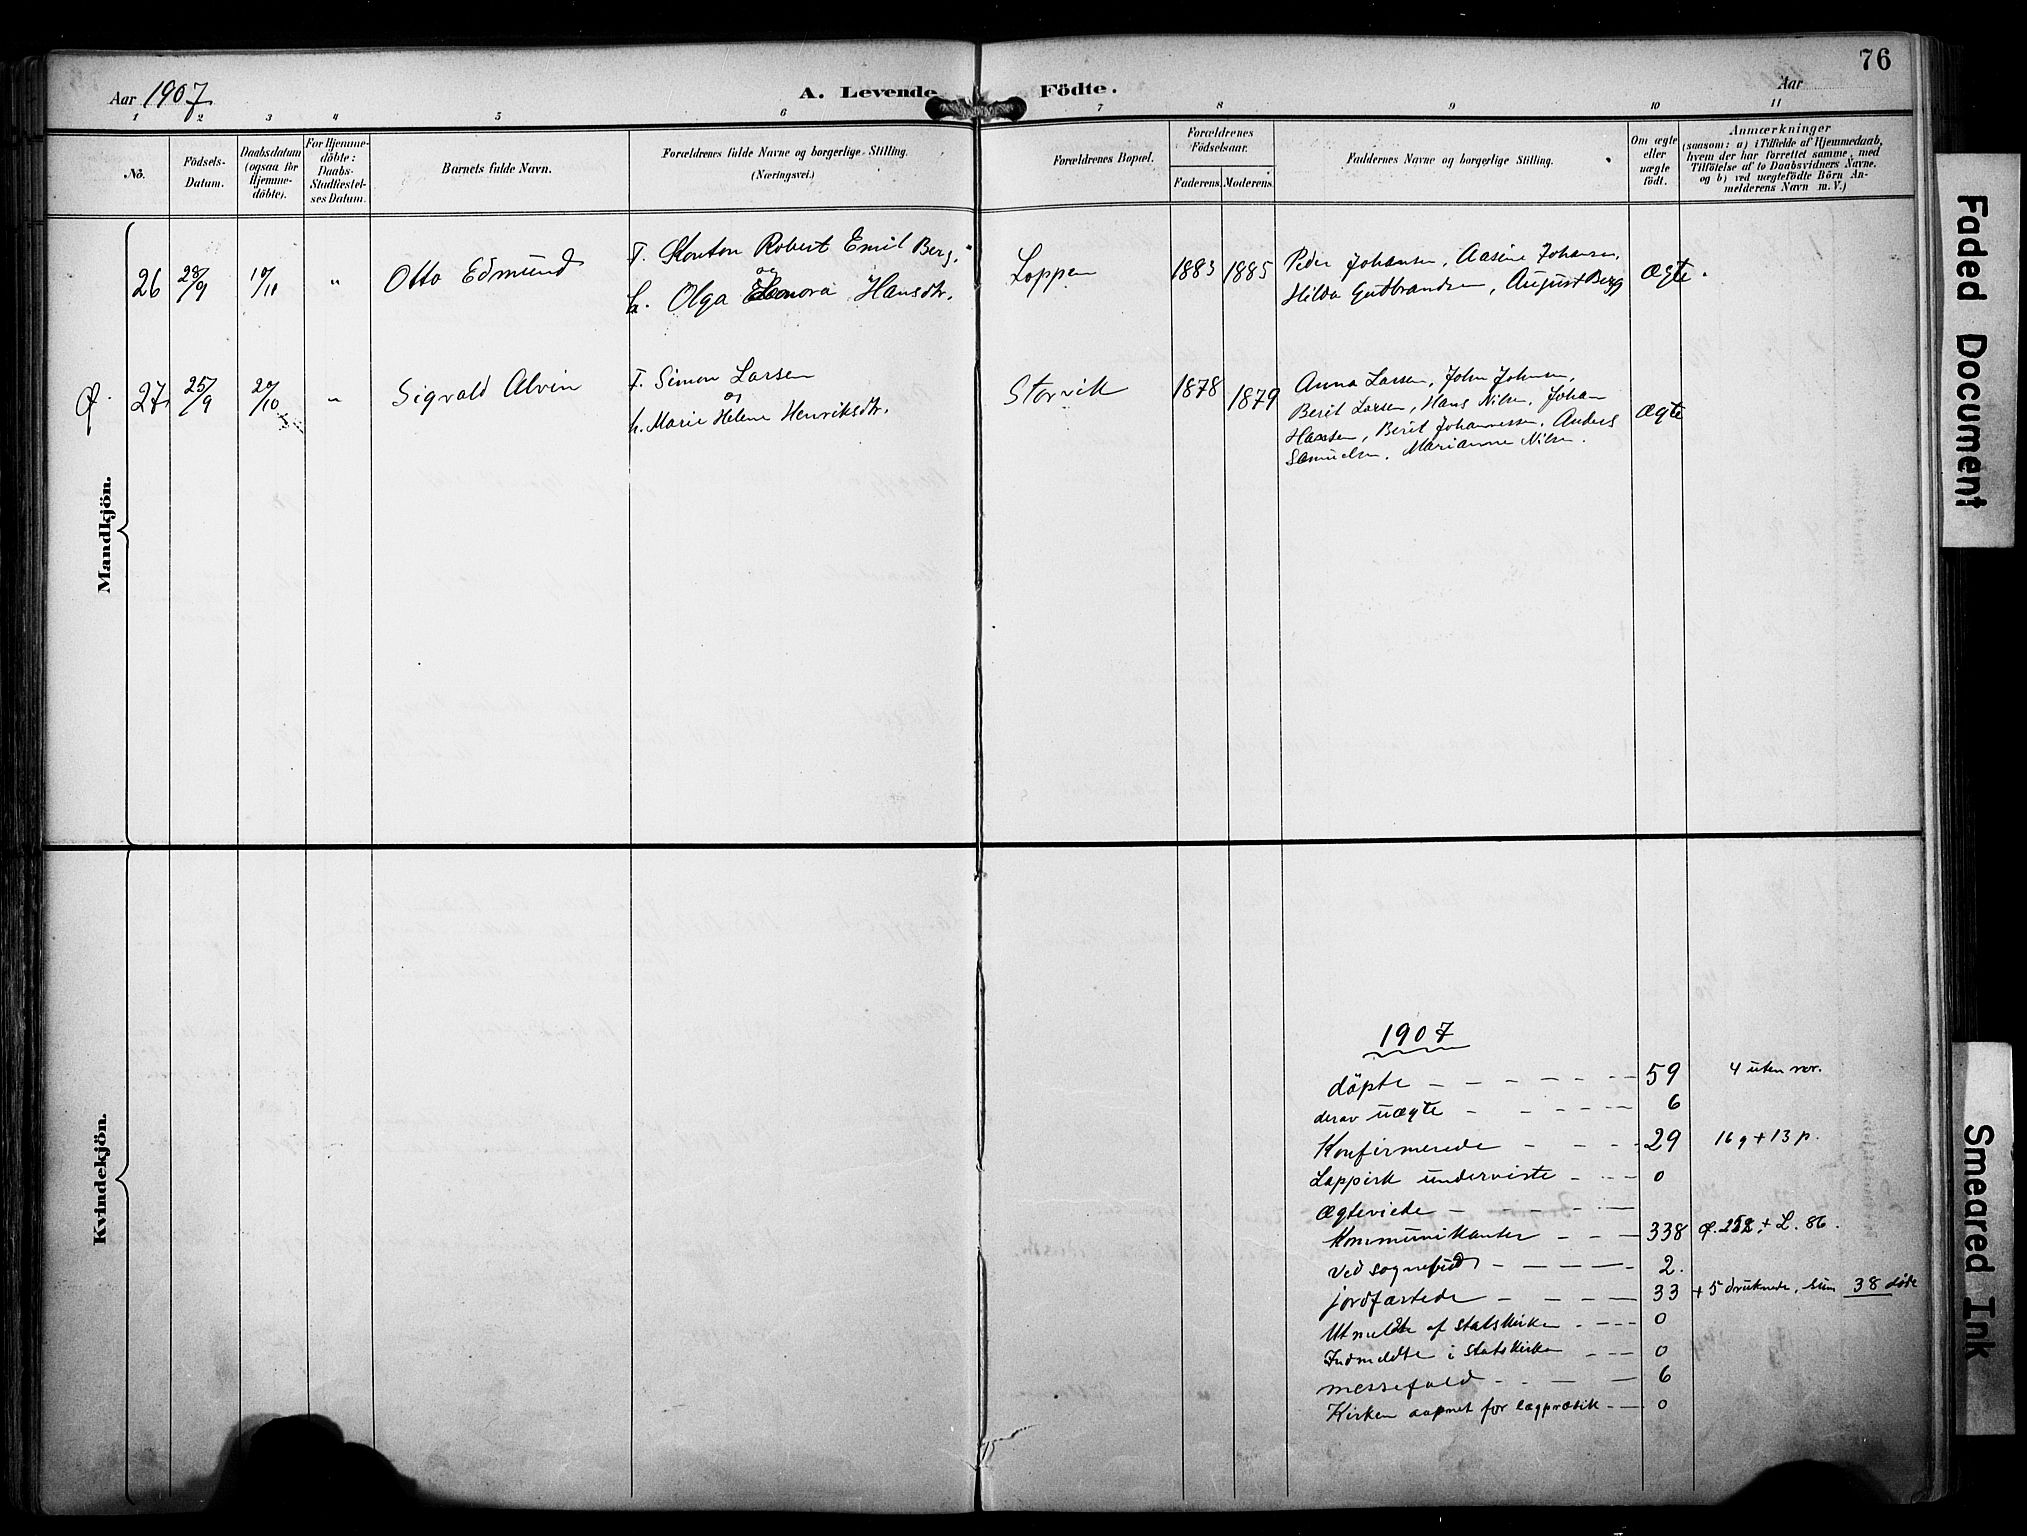 76
Aar 1907
A. Levende Födte.
Aar
1 2 3 4 5 6 7 8 9 10 11
No.
Födsels-Datum.
Daabsdatum (ogsaa for Hjemme-döbte).
For Hjemme-döbte: Daabs-Stadfæstel-ses Datum.
Barnets fulde Navn.
Forældrenes fulde Navne og borgerlige Stilling.
(Næringsvei.)
Forældrenes Bopæl.
Forældrenes Födselsaar.
Faderens. Moderens.
Faddernes Navne og borgerlige Stilling.
Om ægte eller uægte födt.
Anmærkninger
(saasom: a) i Tilfælde af Hjemmedaab,
hvem der har forrettet samme, med
Tilföielse af to Daabsvidners Navne.
og b) ved uægtefödte Börn An-
melderens Navn m. V.)
Mandkjön.
26 28/9 10/11 " Otto Edmund
F. Skouton Robert Emil Berg.
og
h. Olga Eleonora Hansdtr.
Loppen 1883 1885
Peder Johansen, Aasine Johansen,
Hilda Gudbrandsen, August Berg
Ægte.
Ø. 27. 25/9 20/10 " Sigvald Alvin
F. Simon Larsen
og
h. Marie Helene Henriksdtr.
Storvik 1878 1879
Anna Larsen, John Johnsen,
Berit Larsen, Hans Nilsen, Johan
Hansen, Berit Johannessen, Anders
Samuelsen, Marianne Nilsen.
Ægte
Kvindekjön.
1907
døpte 59 4 uten vor.
derav uægte 6
Konfirmerede 29 16 g + 13 p.
Lappisk underviste 0
Ægteviede
Kommunikanter 338 Ø. 252 + L. 86.
Ved sognebud 2.
jordfæstede 33 + 5 druknede, sum 38 døde
Utmeldte af statskirken 0
Indmeldte i statskirken 0
messefald 6
Kirken aapnet for lægprædik 0
Faded Document
Smeared Ink